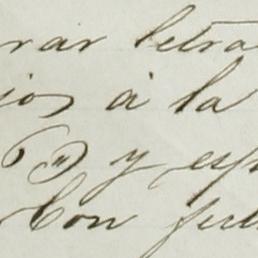 rar letra
jos à la
y esp
Con fech